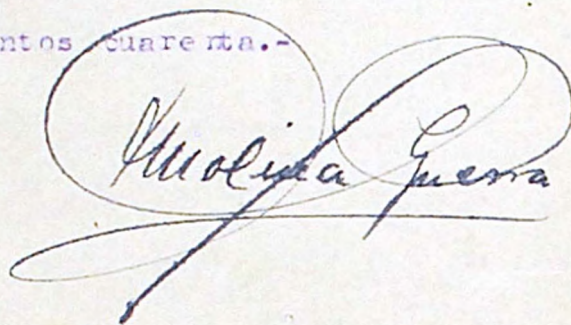 ntos cuarenta.-
Molina Guerra